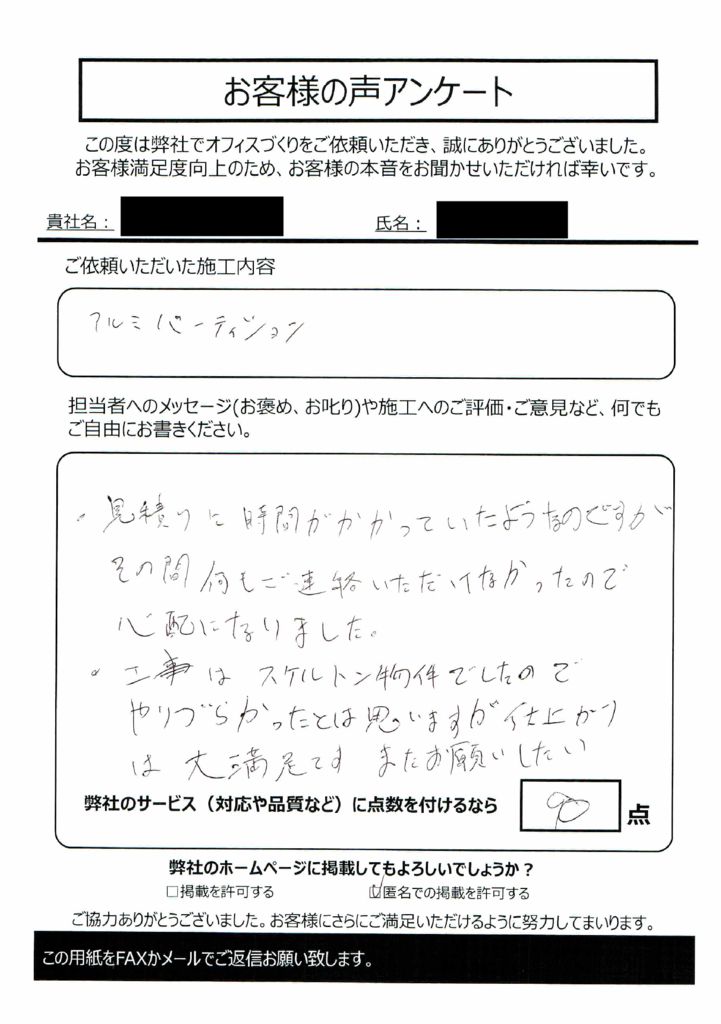 お客様の声アンケート
この度は弊社でオフィスづくりをご依頼いただき、誠にありがとうございました。
お客様満足度向上のため、お客様の本音をお聞かせいただければ幸いです。
貴社名： 氏名：
ご依頼いただいた施工内容
アルミパーティション
担当者へのメッセージ(お褒め、お叱り)や施工へのご評価・ご意見など、何でも
ご自由にお書きください。
・見積りに時間がかかっていたようなのですが
その間何もご連絡いただけなかったので
心配になりました。
・工事はスケルトン物件でしたので
やりづらかったとは思いますが仕上がり
は大満足です またお願いしたい
弊社のサービス（対応や品質など）に点数を付けるなら 90 点
弊社のホームページに掲載してもよろしいでしょうか？
□掲載を許可する ☑匿名での掲載を許可する
ご協力ありがとうございました。お客様にさらにご満足いただけるように努力してまいります。
この用紙をFAXかメールでご返信お願い致します。